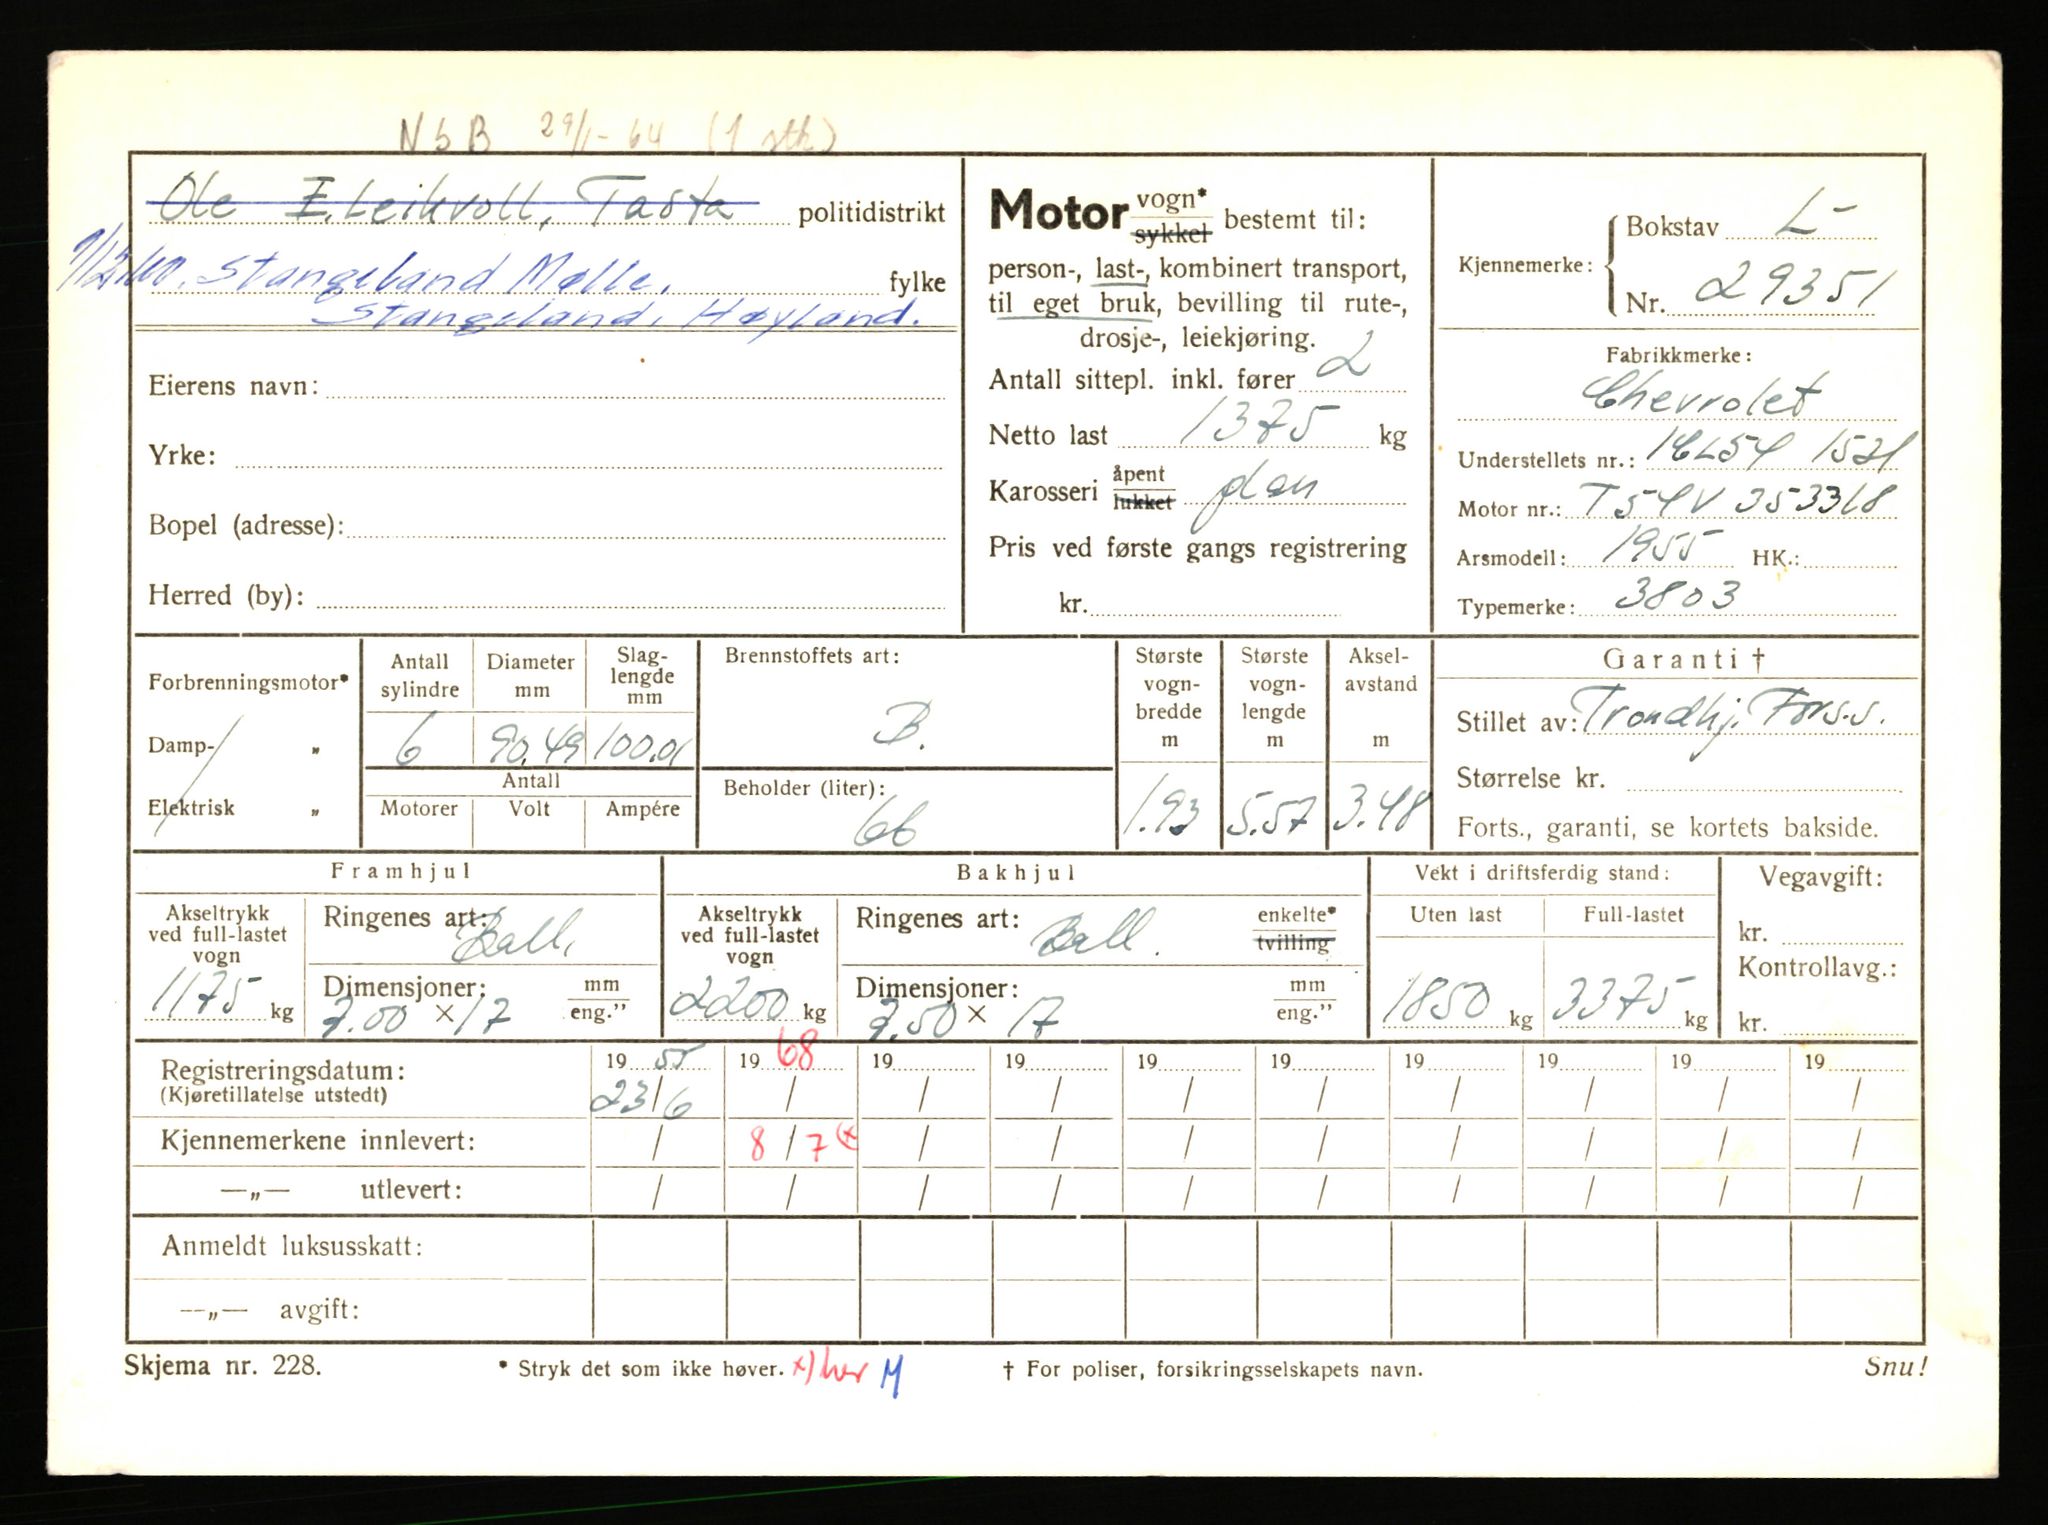 NSB 29/1-64 (1 stk)
Ole E. Leikvoll, Tasta politidistrikt
Stangeland Mølle, fylke
Stangeland, Høyland.
Eierens navn:
Yrke:
Bopel (adresse):
Herred (by):
Motor vogn* sykkel bestemt til:
person-, last-, kombinert transport,
til eget bruk, bevilling til rute-,
drosje-, leiekjøring.
Antall sittepl. inkl. fører 2
Netto last 1375 kg
Karosseri åpent lukket plan
Pris ved første gangs registrering
kr.
Kjennemerke: Bokstav L-
Nr. 29351
Fabrikkmerke:
Chevrolet
Understellets nr.: 14L54 1521
Motor nr.: T54V 353318
Arsmodell: 1955 HK.:
Typemerke: 3803
Forbrenningsmotor*
Damp- „
Elektrisk „
Antall sylindre Diameter mm Slag-lengde mm
6 90.49 100.01
Antall
Motorer Volt Ampére
Brennstoffets art:
B.
Beholder (liter):
66
Største vogn-bredde m Største vogn-lengde m Aksel-avstand m
1.93 5.57 3.48
Garanti †
Stillet av: Trondhj. Fors.s.
Størrelse kr.
Forts., garanti, se kortets bakside.
Framhjul
Akseltrykk ved full-lastet vogn
1175 kg
Ringenes art: Ball.
Dimensjoner: mm eng."
7.00 × 17
Bakhjul
Akseltrykk ved full-lastet vogn
2200 kg
Ringenes art: Ball. enkelte* tvilling
Dimensjoner: mm eng."
7.50 × 17
Vekt i driftsferdig stand:
Uten last Full-lastet
1850 kg 3375 kg
Vegavgift:
kr.
Kontrollavg.:
kr.
Registreringsdatum: 19 55 19 68 19 19 19 19 19 19 19 19
(Kjøretillatelse utstedt) 23/6 / / / / / / / / /
Kjennemerkene innlevert: / 8/7 (x / / / / / / / /
—„— utlevert: / / / / / / / / / /
Anmeldt luksusskatt:
—„— avgift:
Skjema nr. 228. * Stryk det som ikke høver. x) her M † For poliser, forsikringsselskapets navn. Snu!